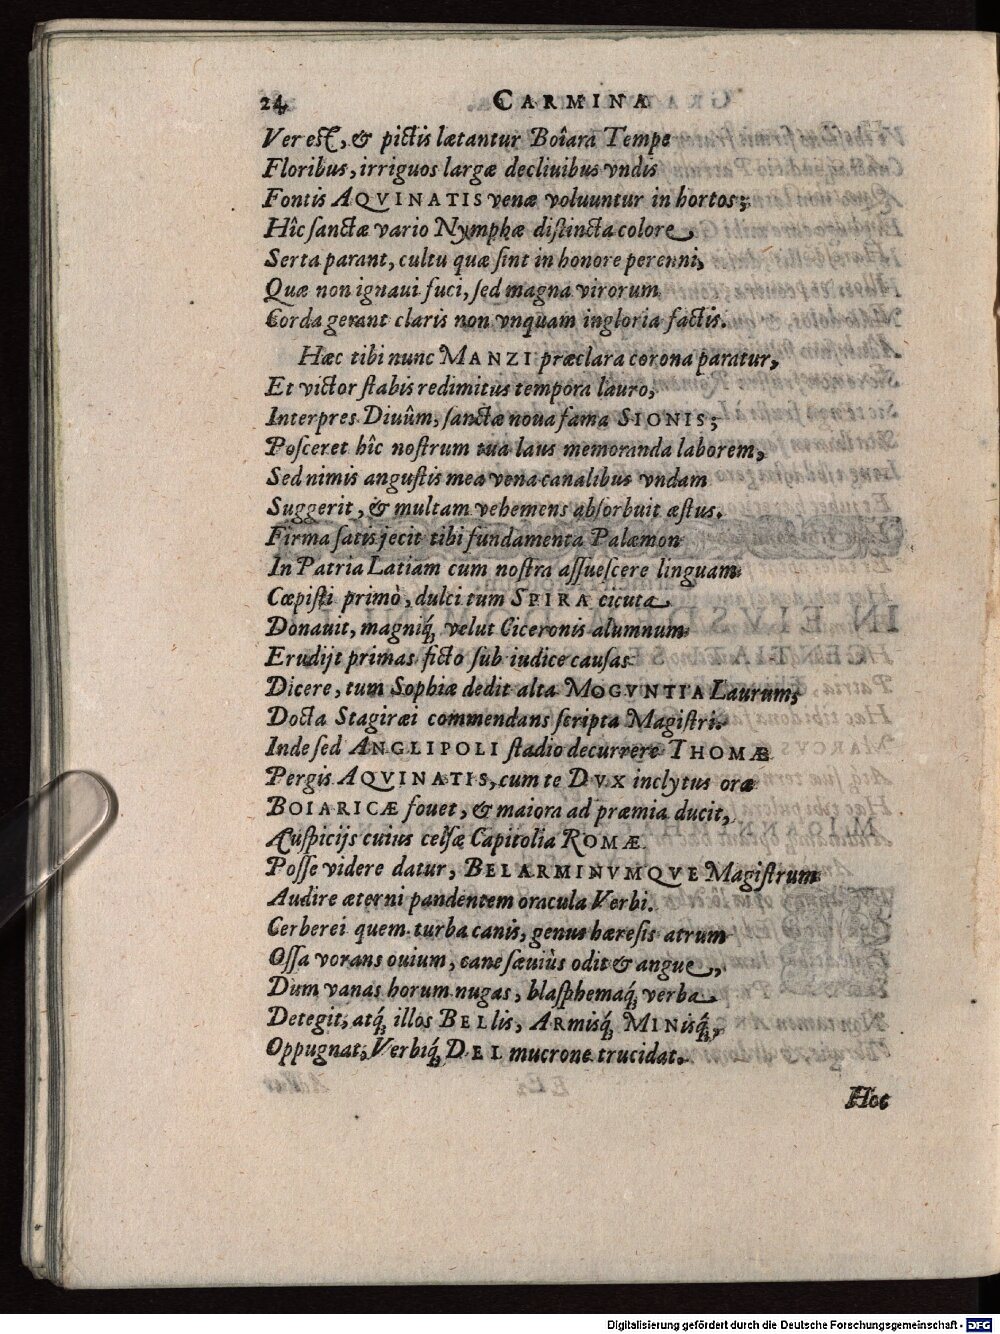 24 CARMINA
Ver est, & pictis lætantur Boîara Tempe
Floribus, irriguos largæ decliuibus vndis
Fontis AQVINATIS venæ voluuntur in hortos;
Hîc ſanctæ vario Nymphæ diſtincta colore,
Serta parant, cultu quæ ſint in honore perenni,
Quæ non ignaui fuci, ſed magna virorum
Corda gerant claris non vnquam ingloria factis.
Hæc tibi nunc MANZI præclara corona paratur,
Et victor ſtabis redimitus tempora lauro,
Interpres Diuûm, ſanctæ noua fama SIONIS;
Poſceret hîc noſtrum tua laus memoranda laborem,
Sed nimis anguſtis mea vena canalibus vndam
Suggerit, & multam vehemens abſorbuit æſtus.
Firma ſatis jecit tibi fundamenta Palæmon
In Patria Latiam cum noſtra aſſueſcere linguam
Cœpiſti primò, dulci tum SPIRA cicuta
Donauit, magniq́; velut Ciceronis alumnum
Erudijt primas ficto ſub iudice cauſas
Dicere, tum Sophiæ dedit alta MOGVNTIA Laurum,
Docta Stagiræi commendans ſcripta Magiſtri.
Inde ſed ANGLIPOLI ſtadio decurrere THOMÆ
Pergis AQVINATIS, cum te DVX inclytus oræ
BOIARICÆ fouet, & maiora ad præmia ducit,
Auſpicijs cuius celſæ Capitolia ROMÆ
Poſſe videre datur, BELARMINVMQVE Magiſtrum
Audire æterni pandentem oracula Verbi.
Cerberei quem turba canis, genus hæreſis atrum
Oſſa vorans ouium, cane ſæuiùs odit & angue,
Dum vanas horum nugas, blaſphemaq́; verba
Detegit; atq́; illos BELlis, ARmisq́; MINisq́;,
Oppugnat; Verbiq́; DEI mucrone trucidat.
Hoc
Digitalisierung gefördert durch die Deutsche Forschungsgemeinschaft - DFG